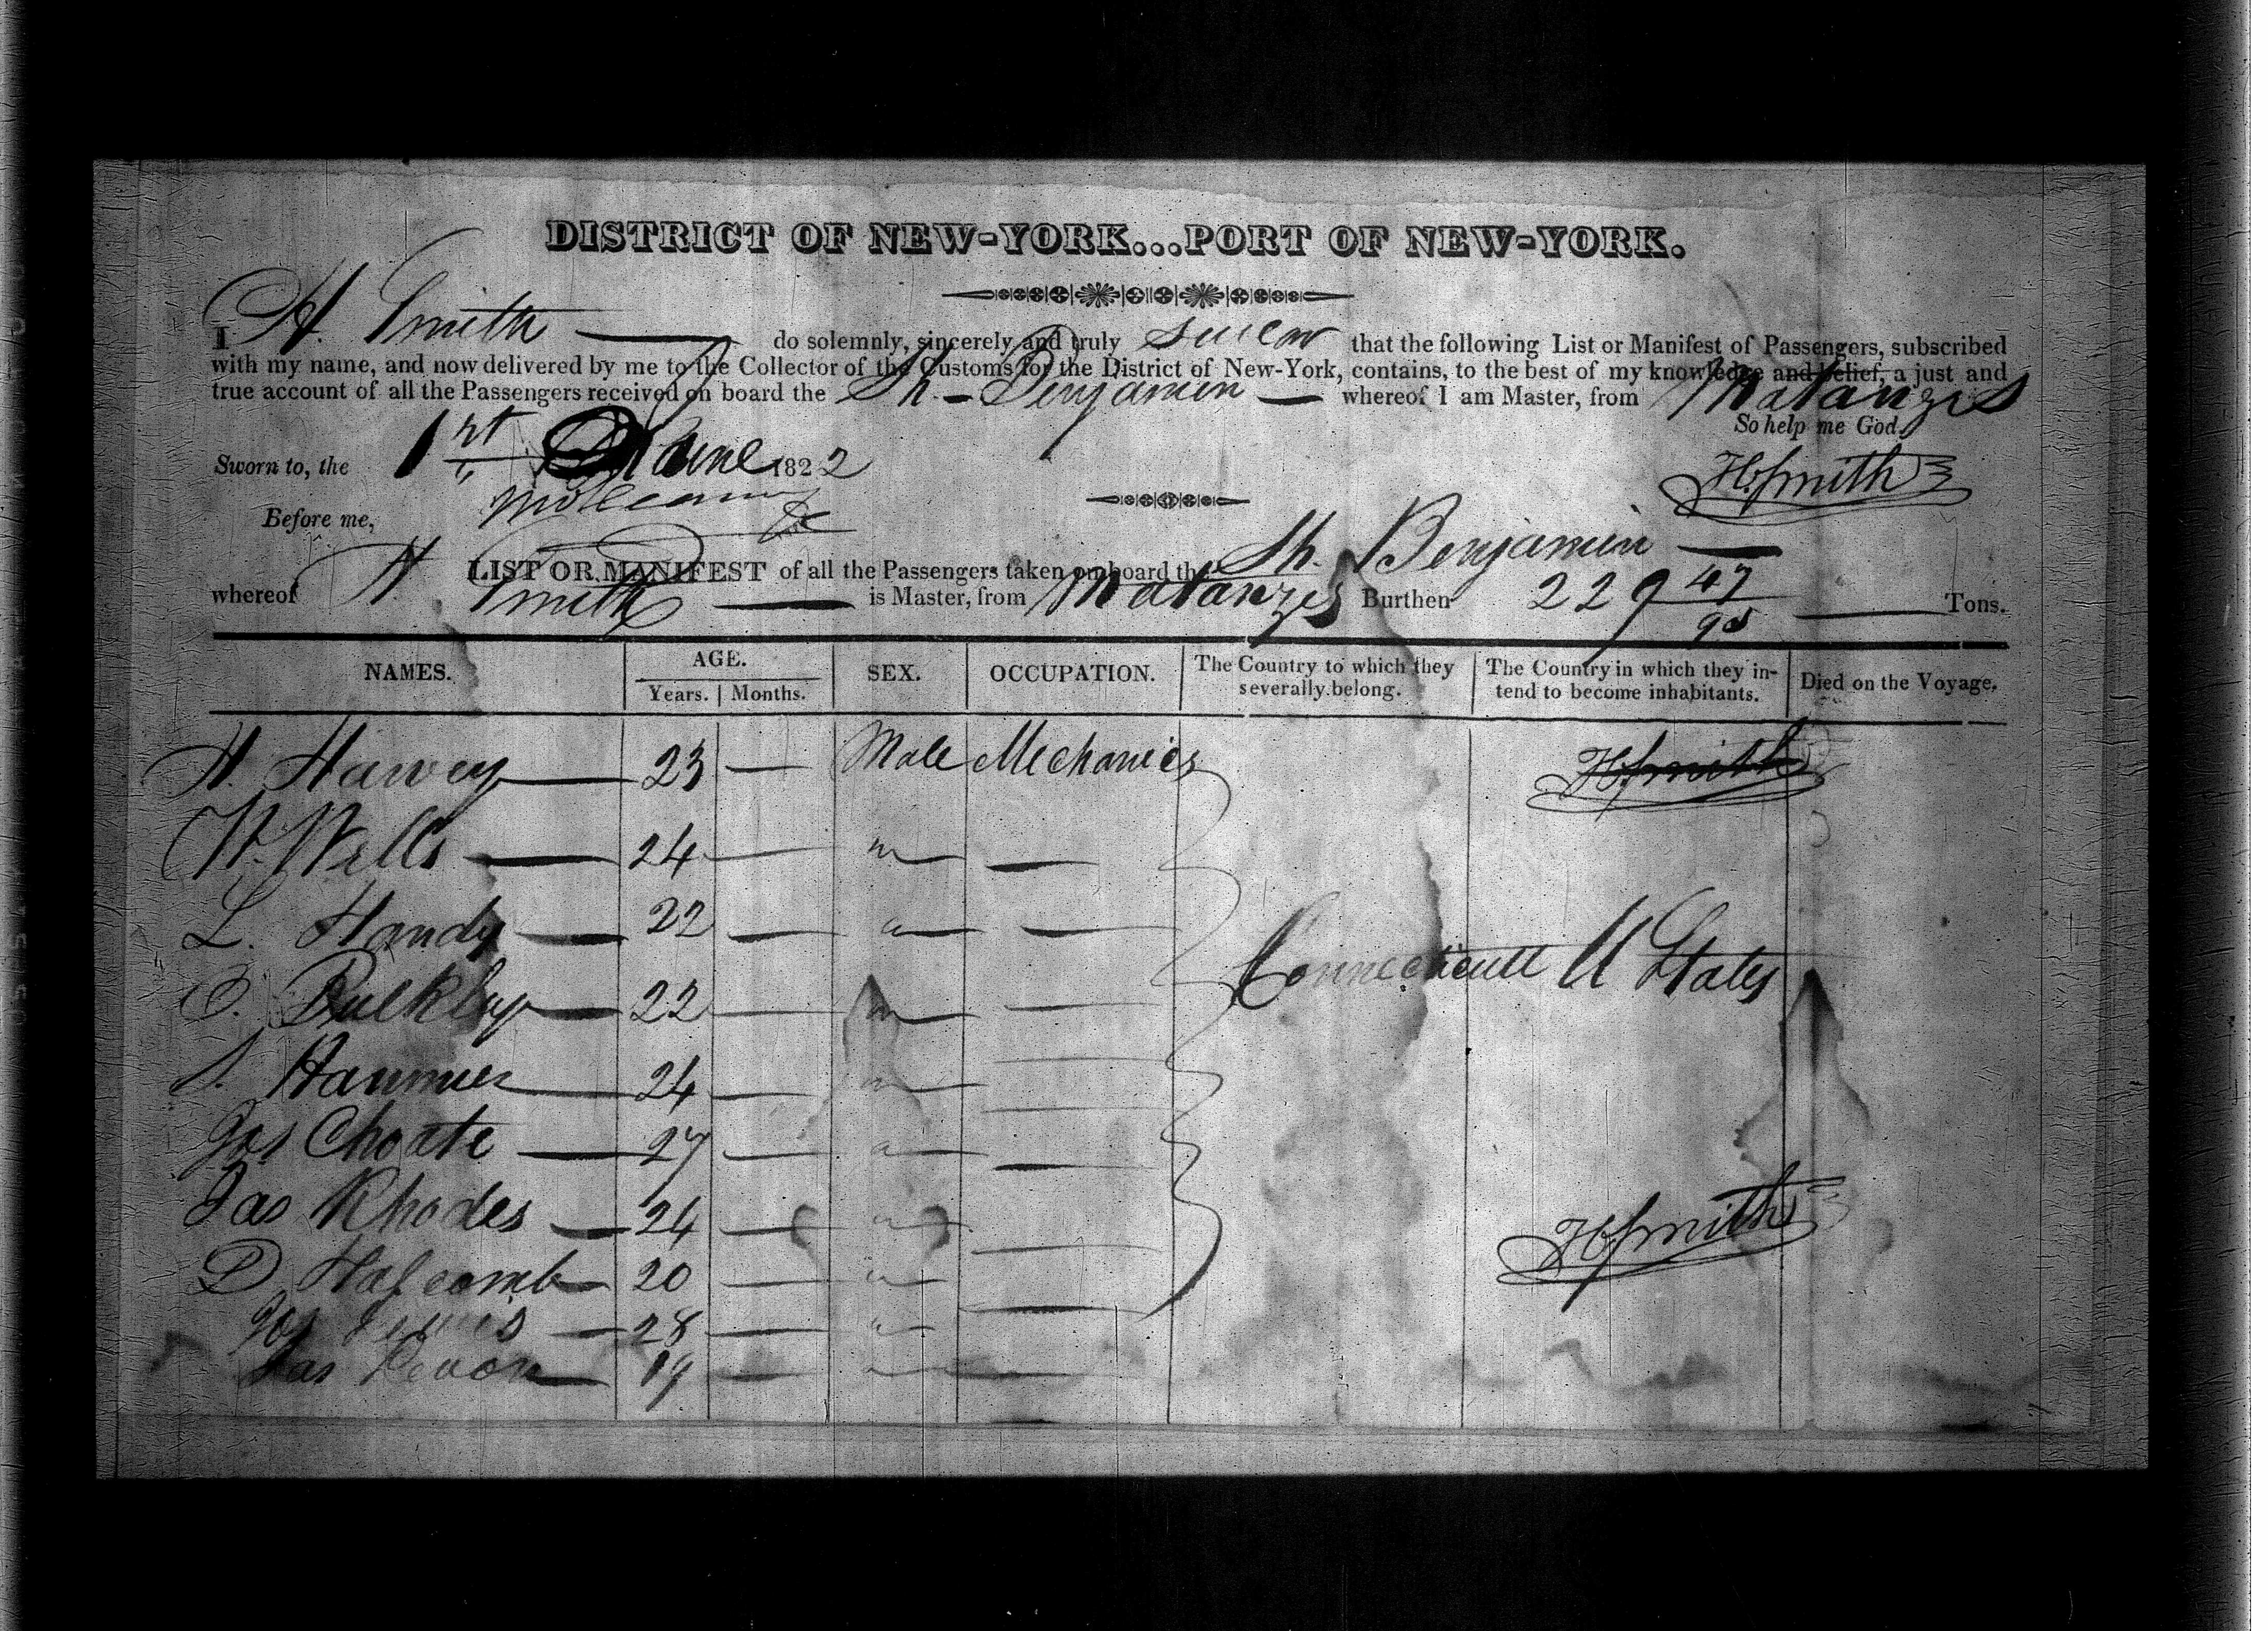 DISTRICT OF NEW-YORK...PORT OF NEW-YORK.
I H. Smith do solemnly, sincerely and truly swear that the following List or Manifest of Passengers, subscribed
with my name, and now delivered by me to the Collector of the Customs for the District of New-York, contains, to the best of my knowledge and belief, a just and
true account of all the Passengers received on board the Sh. Benjamin whereof I am Master, from Matanzes
So help me God.
Sworn to, the 1st June 1822
H Smith
Before me,
LIST OR MANIFEST of all the Passengers taken on board the Sh. Benjamin
whereof H Smith is Master, from Matanzes Burthen 229 47/95 Tons.
NAMES. AGE. SEX. OCCUPATION. The Country to which they severally belong. The Country in which they intend to become inhabitants. Died on the Voyage.
Years. Months.
H. Harvey 23 — Male Mechanics H Smith
W. Wells 24 — "
L. Handy 22 — "
Connecticutt U States
Bulkley 22 — "
S. Hanmer 24 — "
Jos Choate 27 — "
Jas Rhodes 24 — " H Smith
D Hafcomb 20 — "
Jos 28 — "
Jas 19 — "